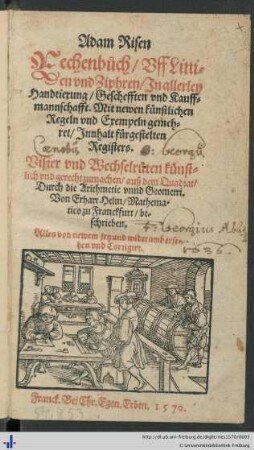 Adam Risen
Rechenbuch / Uff Lini-
en vnd Ziphren / In allerley
Handtierung / Geschefften vnd Kauff-
mannschafft. Mit newen künstlichen
Regeln vnd Exempeln gemeh-
ret / Innhalt fürgestelten
Registers.
Visier vnd Wechselruten künst-
lich vnd gerecht zumachen / auß dem Quadrat /
Durch die Arithmetic vnnd Geometri.
Von Erhart Helm / Mathema-
tico zu Franckfurt / be-
schrieben.
Alles von newem jetzund widerumb erse-
hen vnd Corrigirt.
1656.
Franck. Bei Chr. Egen. Erben. 1570.
© Universitätsbibliothek Freiburg